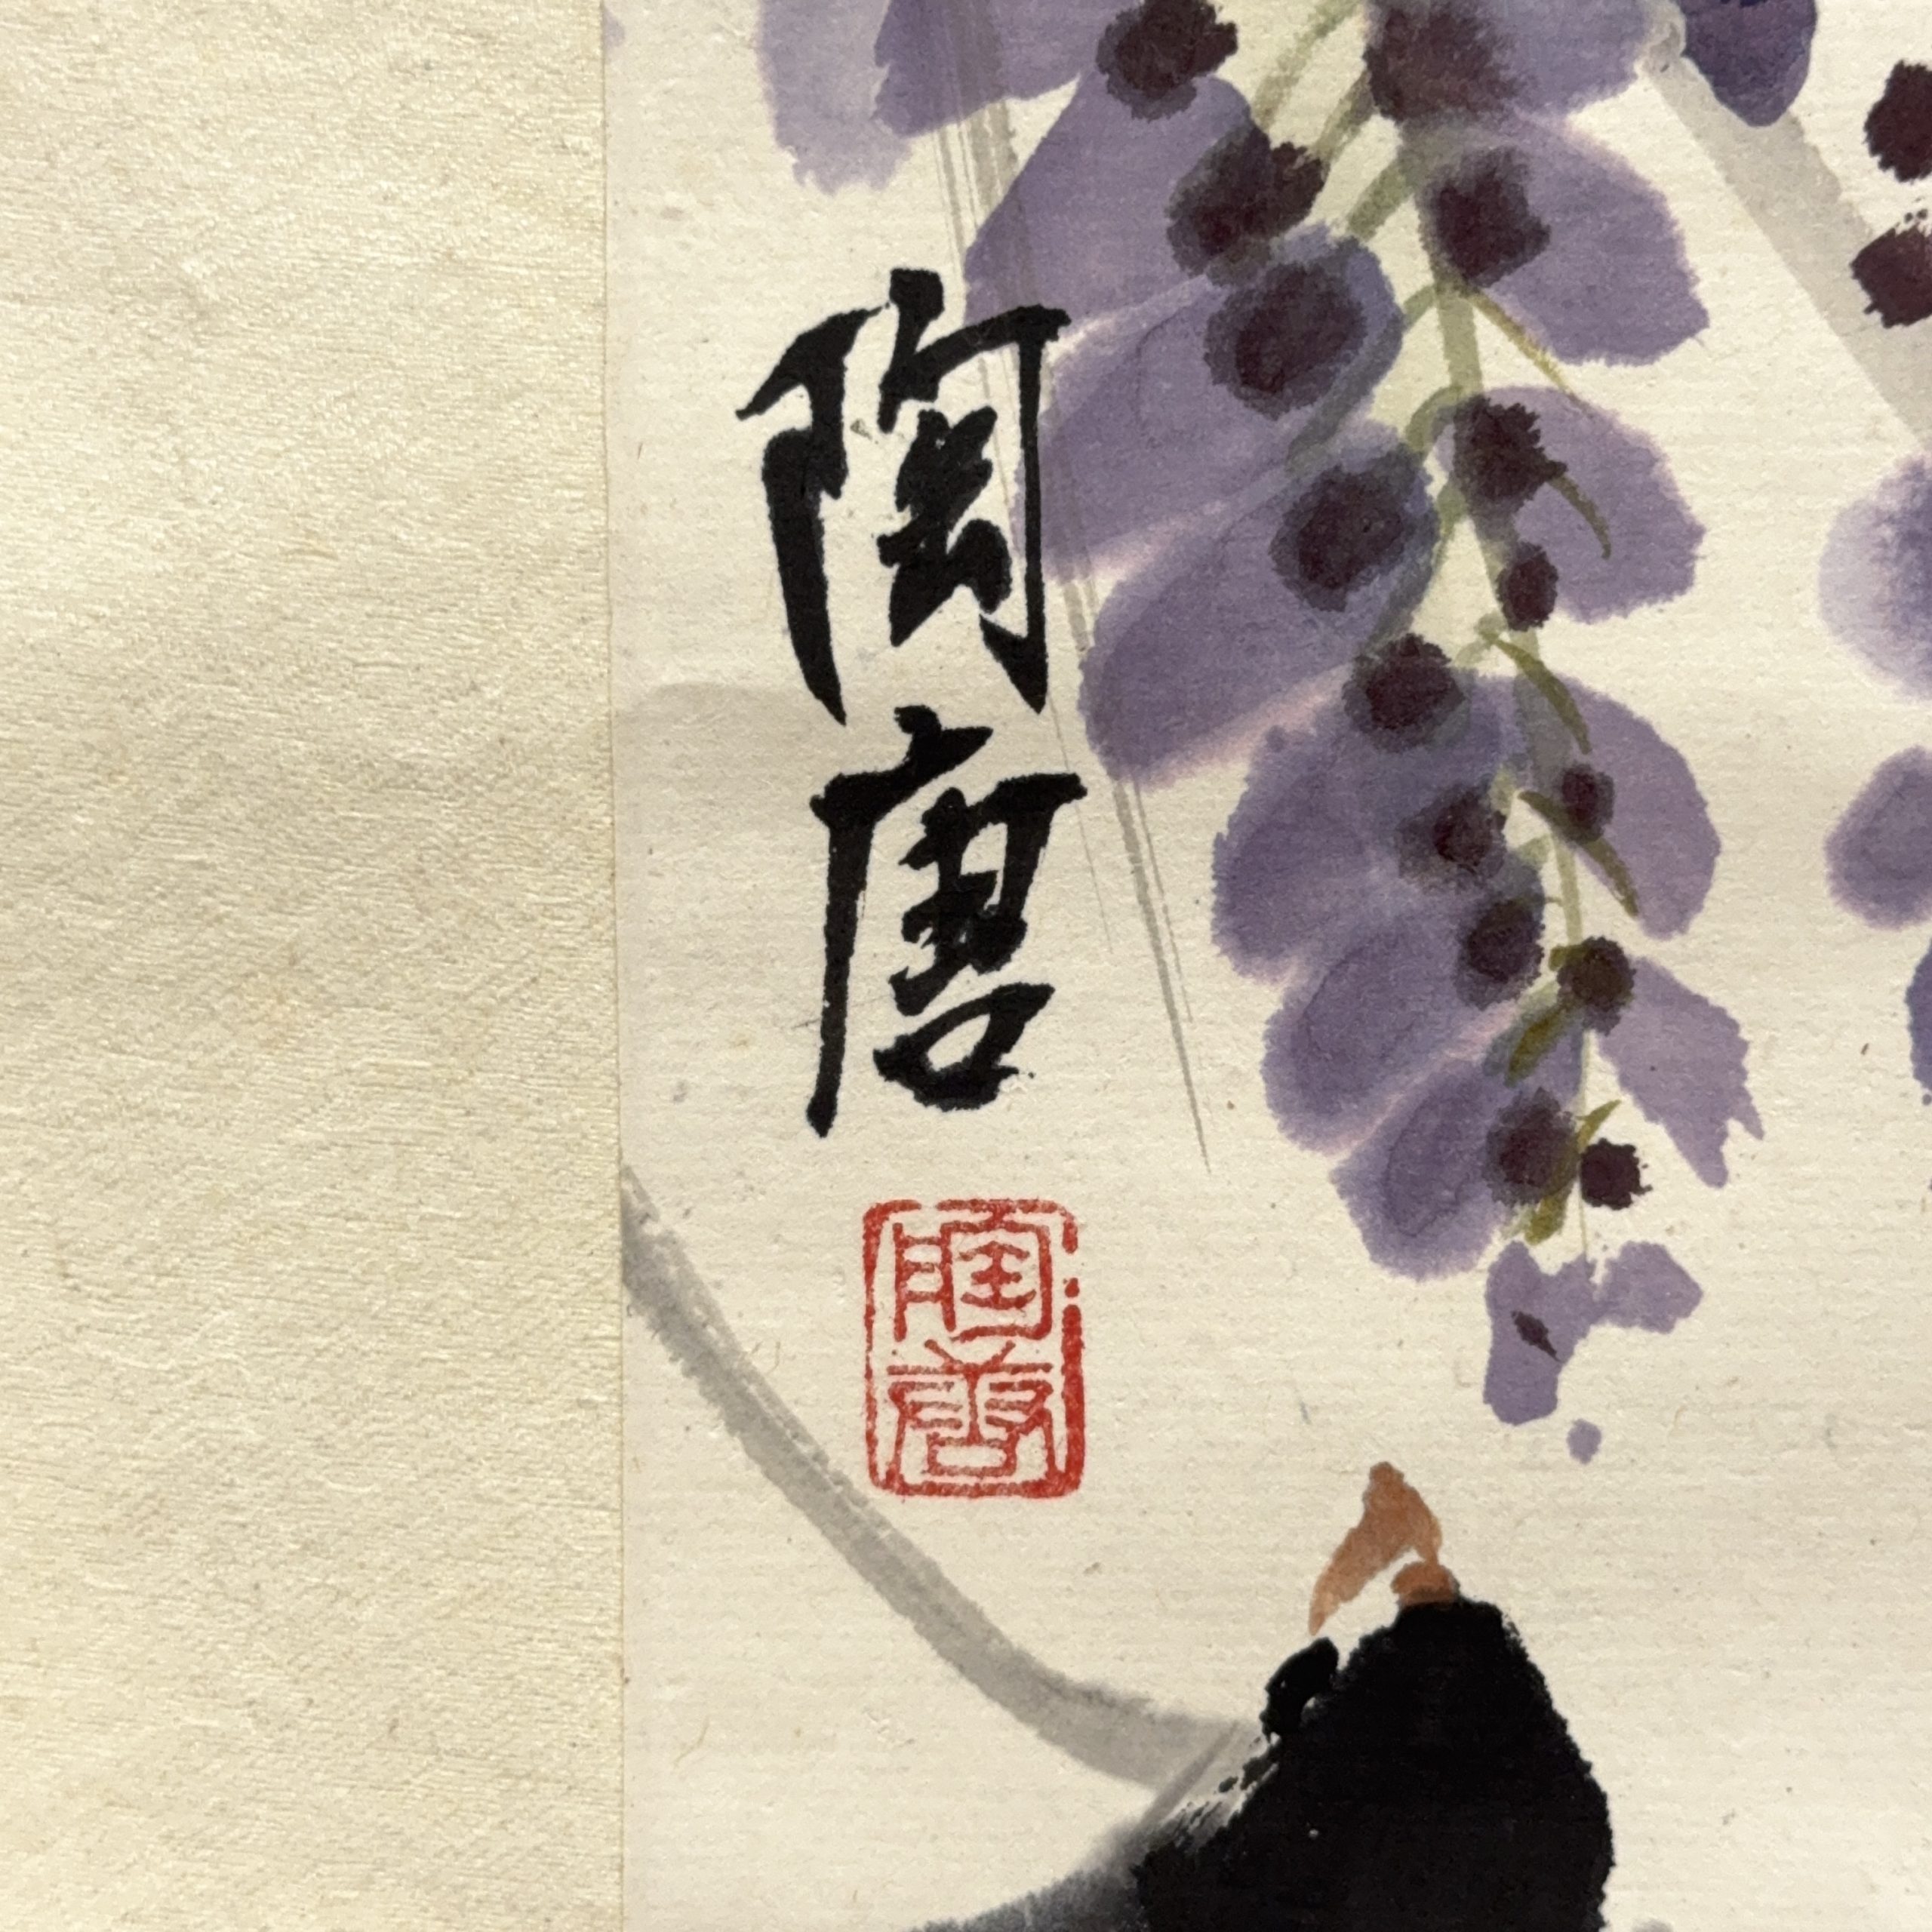 陶唐
陶唐